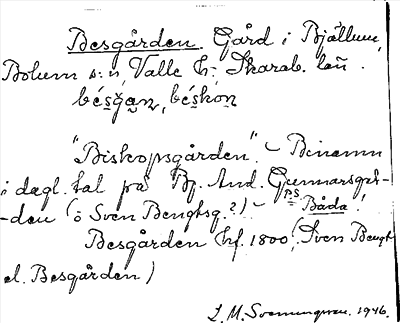 Besgården. Gård i Bjällum,
Bolum s:n, Valle h:, Skarab. län.
"Biskopsgården". – Benämn
i dagl. tal på Bj. And. Gunnarsgår-
-den (ö Sven Bengtsg.?) – Båda!
Besgården hf. 1800 (Sven Bengt
el. Besgården)
1946.